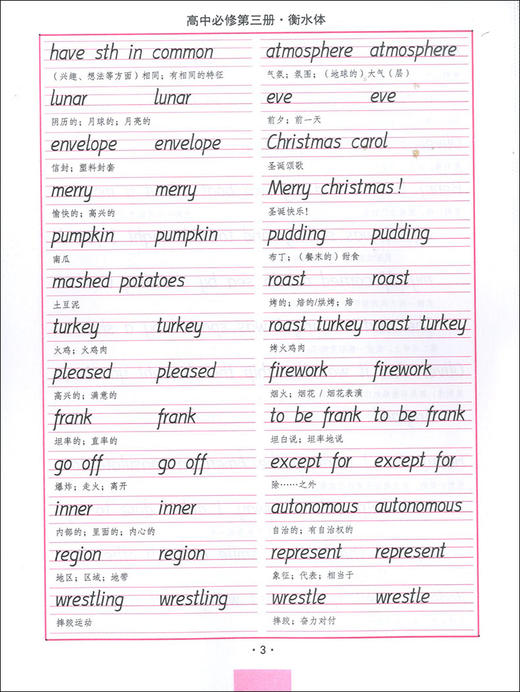 高中必修第三册·衡水体
have sth in common
(兴趣、想法等方面)相同;有相同的特征
lunar lunar
阴历的;月球的;月亮的
envelope envelope
信封;塑料封套
merry merry
愉快的;高兴的
pumpkin pumpkin
南瓜
mashed potatoes
土豆泥
turkey turkey
火鸡;火鸡肉
pleased pleased
高兴的;满意的
frank frank
坦率的;直率的
go off go off
爆炸;走火;离开
inner inner
内部的;里面的;内心的
region region
地区;区域;地带
wrestling wrestling
摔跤运动
atmosphere atmosphere
气氛;氛围;(地球的)大气(层)
eve eve
前夕;前一天
Christmas carol
圣诞颂歌
Merry christmas!
圣诞快乐!
pudding pudding
布丁;(餐末的)甜食
roast roast
烤的;焙的/烘烤;焙
roast turkey roast turkey
烤火鸡肉
firework firework
烟火;烟花/烟花表演
to be frank to be frank
坦白说;坦率地说
except for except for
除……之外
autonomous autonomous
自治的;有自治权的
represent represent
象征;代表;相当于
wrestle wrestle
摔跤;奋力对付
·3·